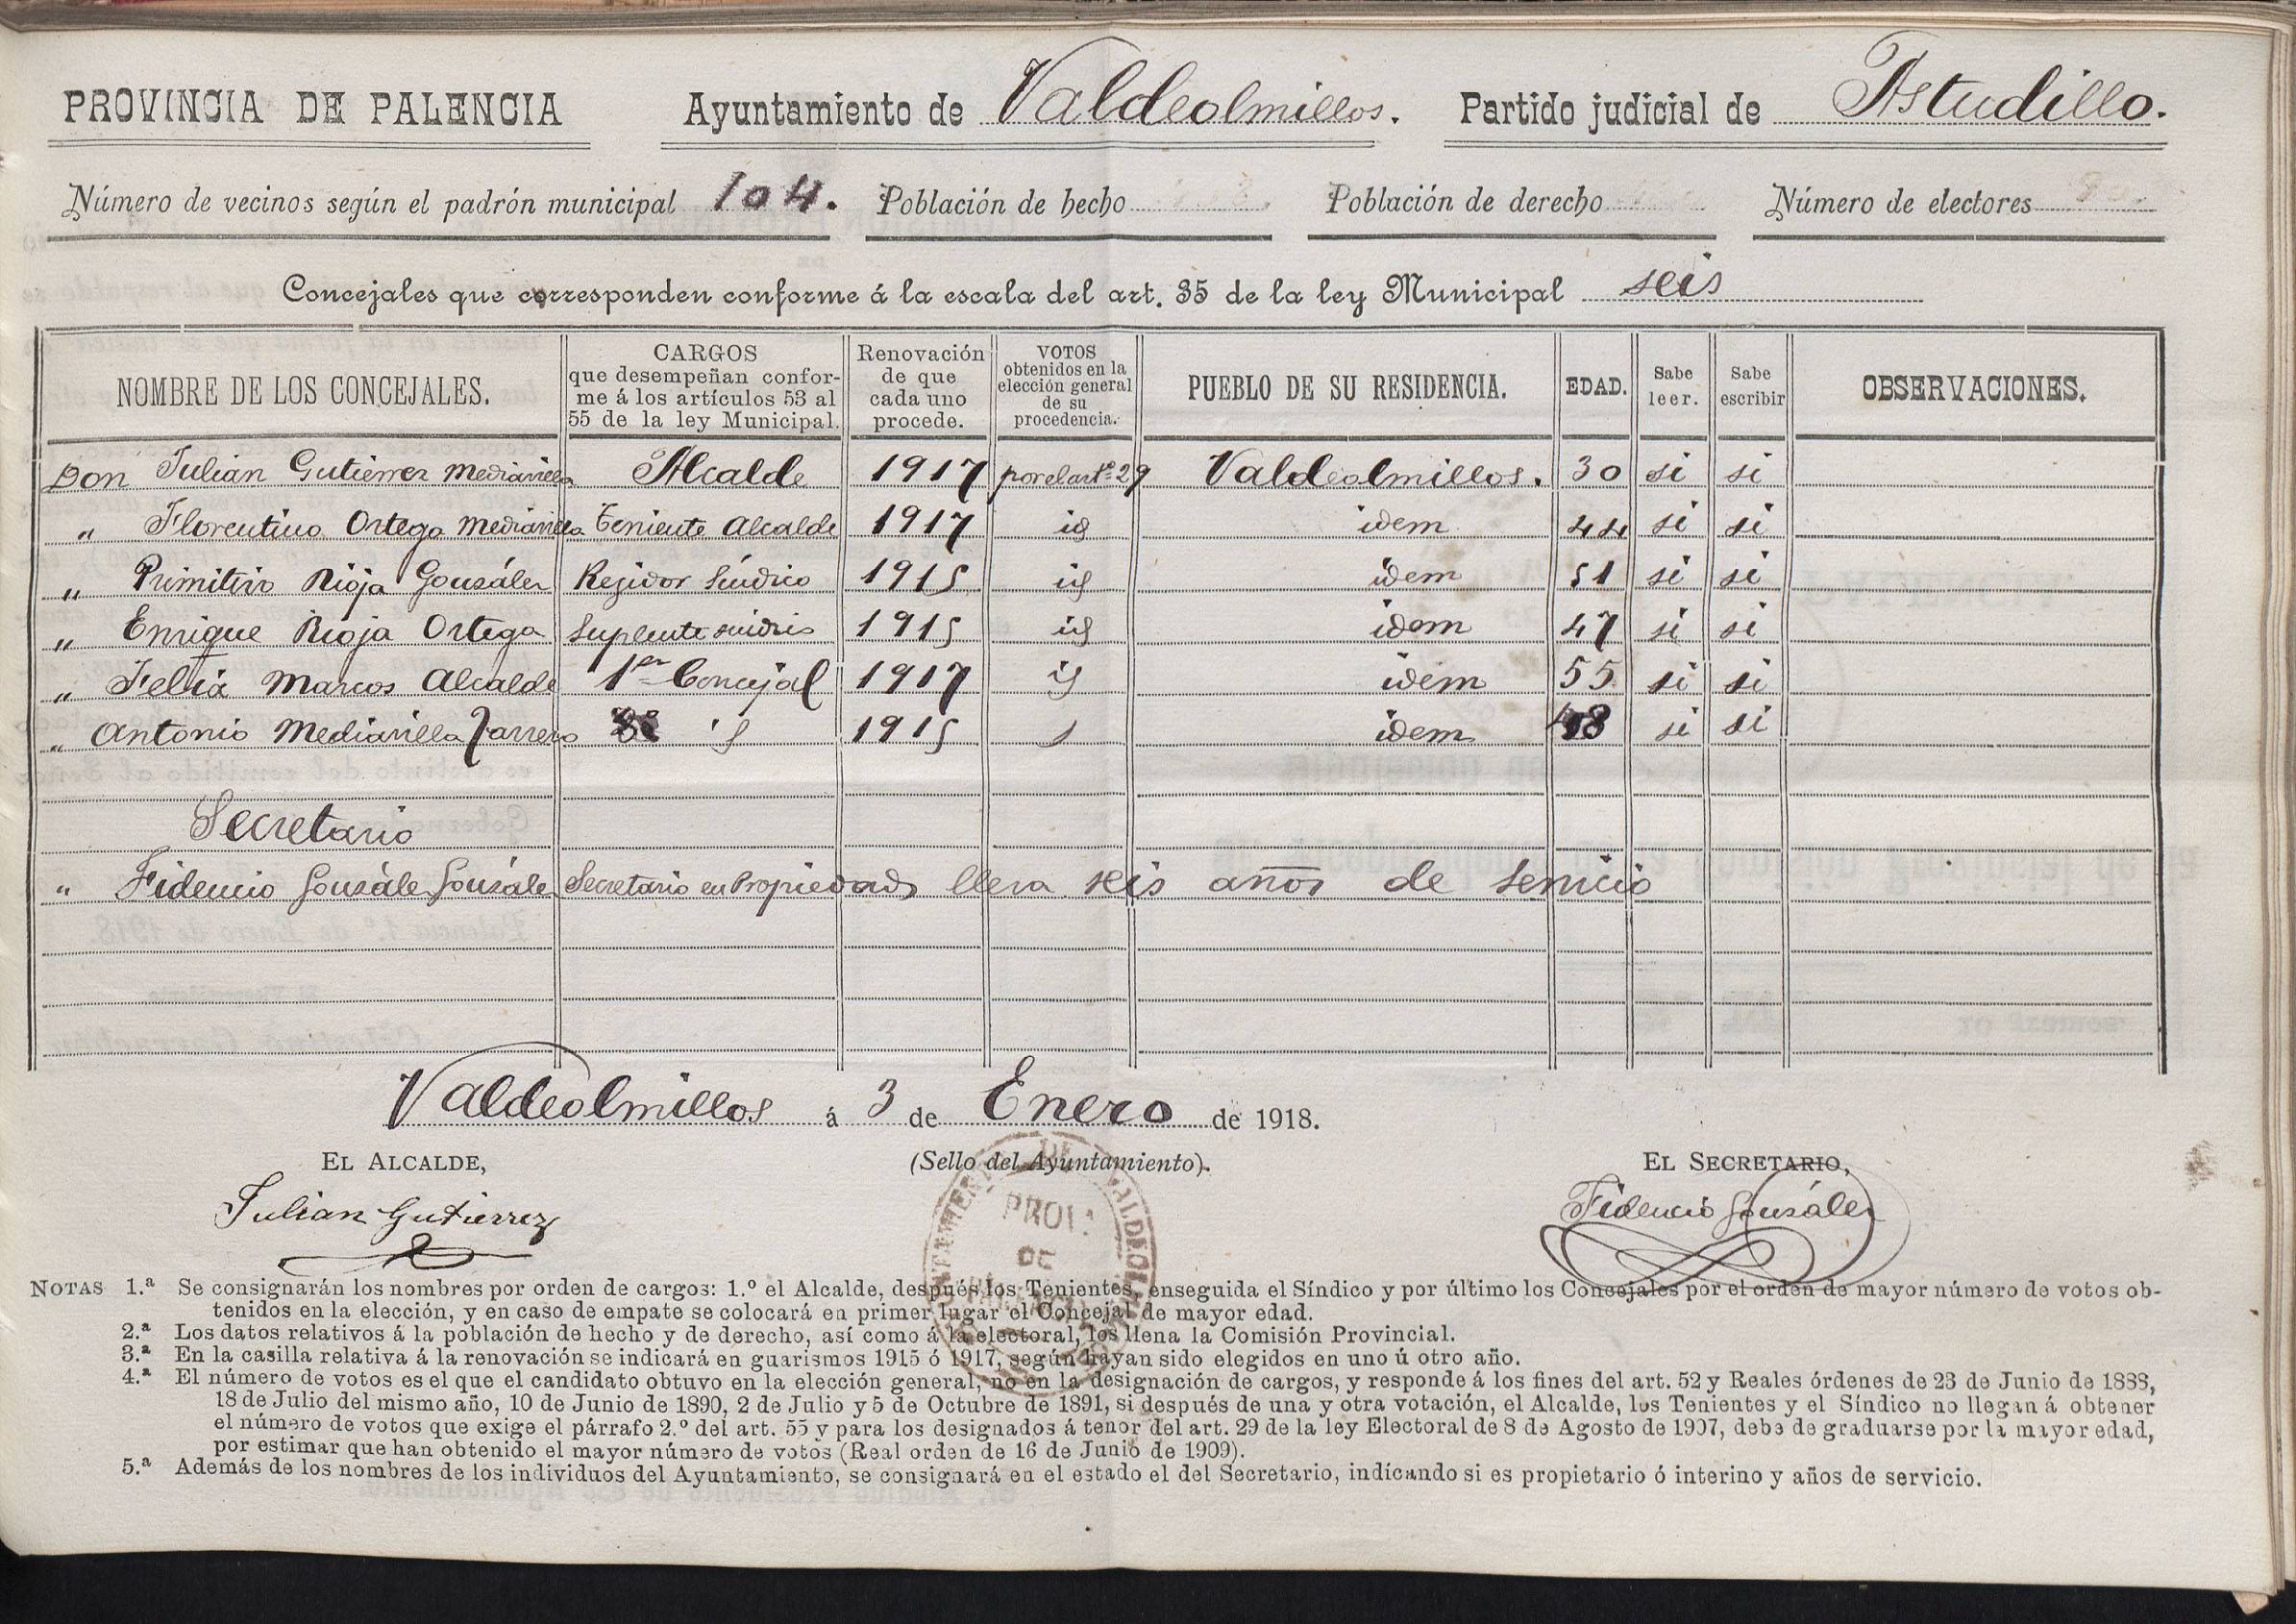 PROVINCIA DE PALENCIA Ayuntamiento de Valdeolmillos. Partido judicial de Astudillo.
Número de vecinos según el padrón municipal 104. Población de hecho Población de derecho Número de electores
Concejales que corresponden conforme á la escala del art. 35 de la ley Municipal seis
NOMBRE DE LOS CONCEJALES. CARGOS que desempeñan confor-me á los artículos 53 al 55 de la ley Municipal. Renovación de que cada uno procede. VOTOS obtenidos en la elección general de su procedencia. PUEBLO DE SU RESIDENCIA. EDAD. Sabe leer. Sabe escribir OBSERVACIONES.
Don Julian Gutierrez Mediavilla Alcalde 1917 por el artº 29 Valdeolmillos. 30 si si
" Florentino Ortega Mediavilla Teniente Alcalde 1917 id idem 44 si si
" Primitivo Rioja González Regidor Síndico 1915 id idem 51 si si
" Enrique Rioja Ortega Suplente 1915 id idem 47 si si
" Felix Marcos Alcalde 1er Concejal 1917 id idem 55 si si
" Antonio Mediavilla id 1915 idem 48 si si
Secretario
" Fidencio González González Secretario en Propiedad lleva seis años de servicio
Valdeolmillos á 3 de Enero de 1918.
EL ALCALDE, (Sello del Ayuntamiento). EL SECRETARIO,
Julian Gutierrez Fidencio González
PROV.
DE
NOTAS 1.ª Se consignarán los nombres por orden de cargos: 1.º el Alcalde, después los Tenientes, enseguida el Síndico y por último los Concejales por el orden de mayor número de votos ob-
tenidos en la elección, y en caso de empate se colocará en primer lugar el Concejal de mayor edad.
2.ª Los datos relativos á la población de hecho y de derecho, así como á la electoral, los llena la Comisión Provincial.
3.ª En la casilla relativa á la renovación se indicará en guarismos 1915 ó 1917, según hayan sido elegidos en uno ú otro año.
4.ª El número de votos es el que el candidato obtuvo en la elección general, no en la designación de cargos, y responde á los fines del art. 52 y Reales órdenes de 23 de Junio de 1888,
18 de Julio del mismo año, 10 de Junio de 1890, 2 de Julio y 5 de Octubre de 1891, si después de una y otra votación, el Alcalde, los Tenientes y el Síndico no llegan á obtener
el número de votos que exige el párrafo 2.º del art. 55 y para los designados á tenor del art. 29 de la ley Electoral de 8 de Agosto de 1907, debe de graduarse por la mayor edad,
por estimar que han obtenido el mayor número de votos (Real orden de 16 de Junio de 1909).
5.ª Además de los nombres de los individuos del Ayuntamiento, se consignará en el estado el del Secretario, indicando si es propietario ó interino y años de servicio.